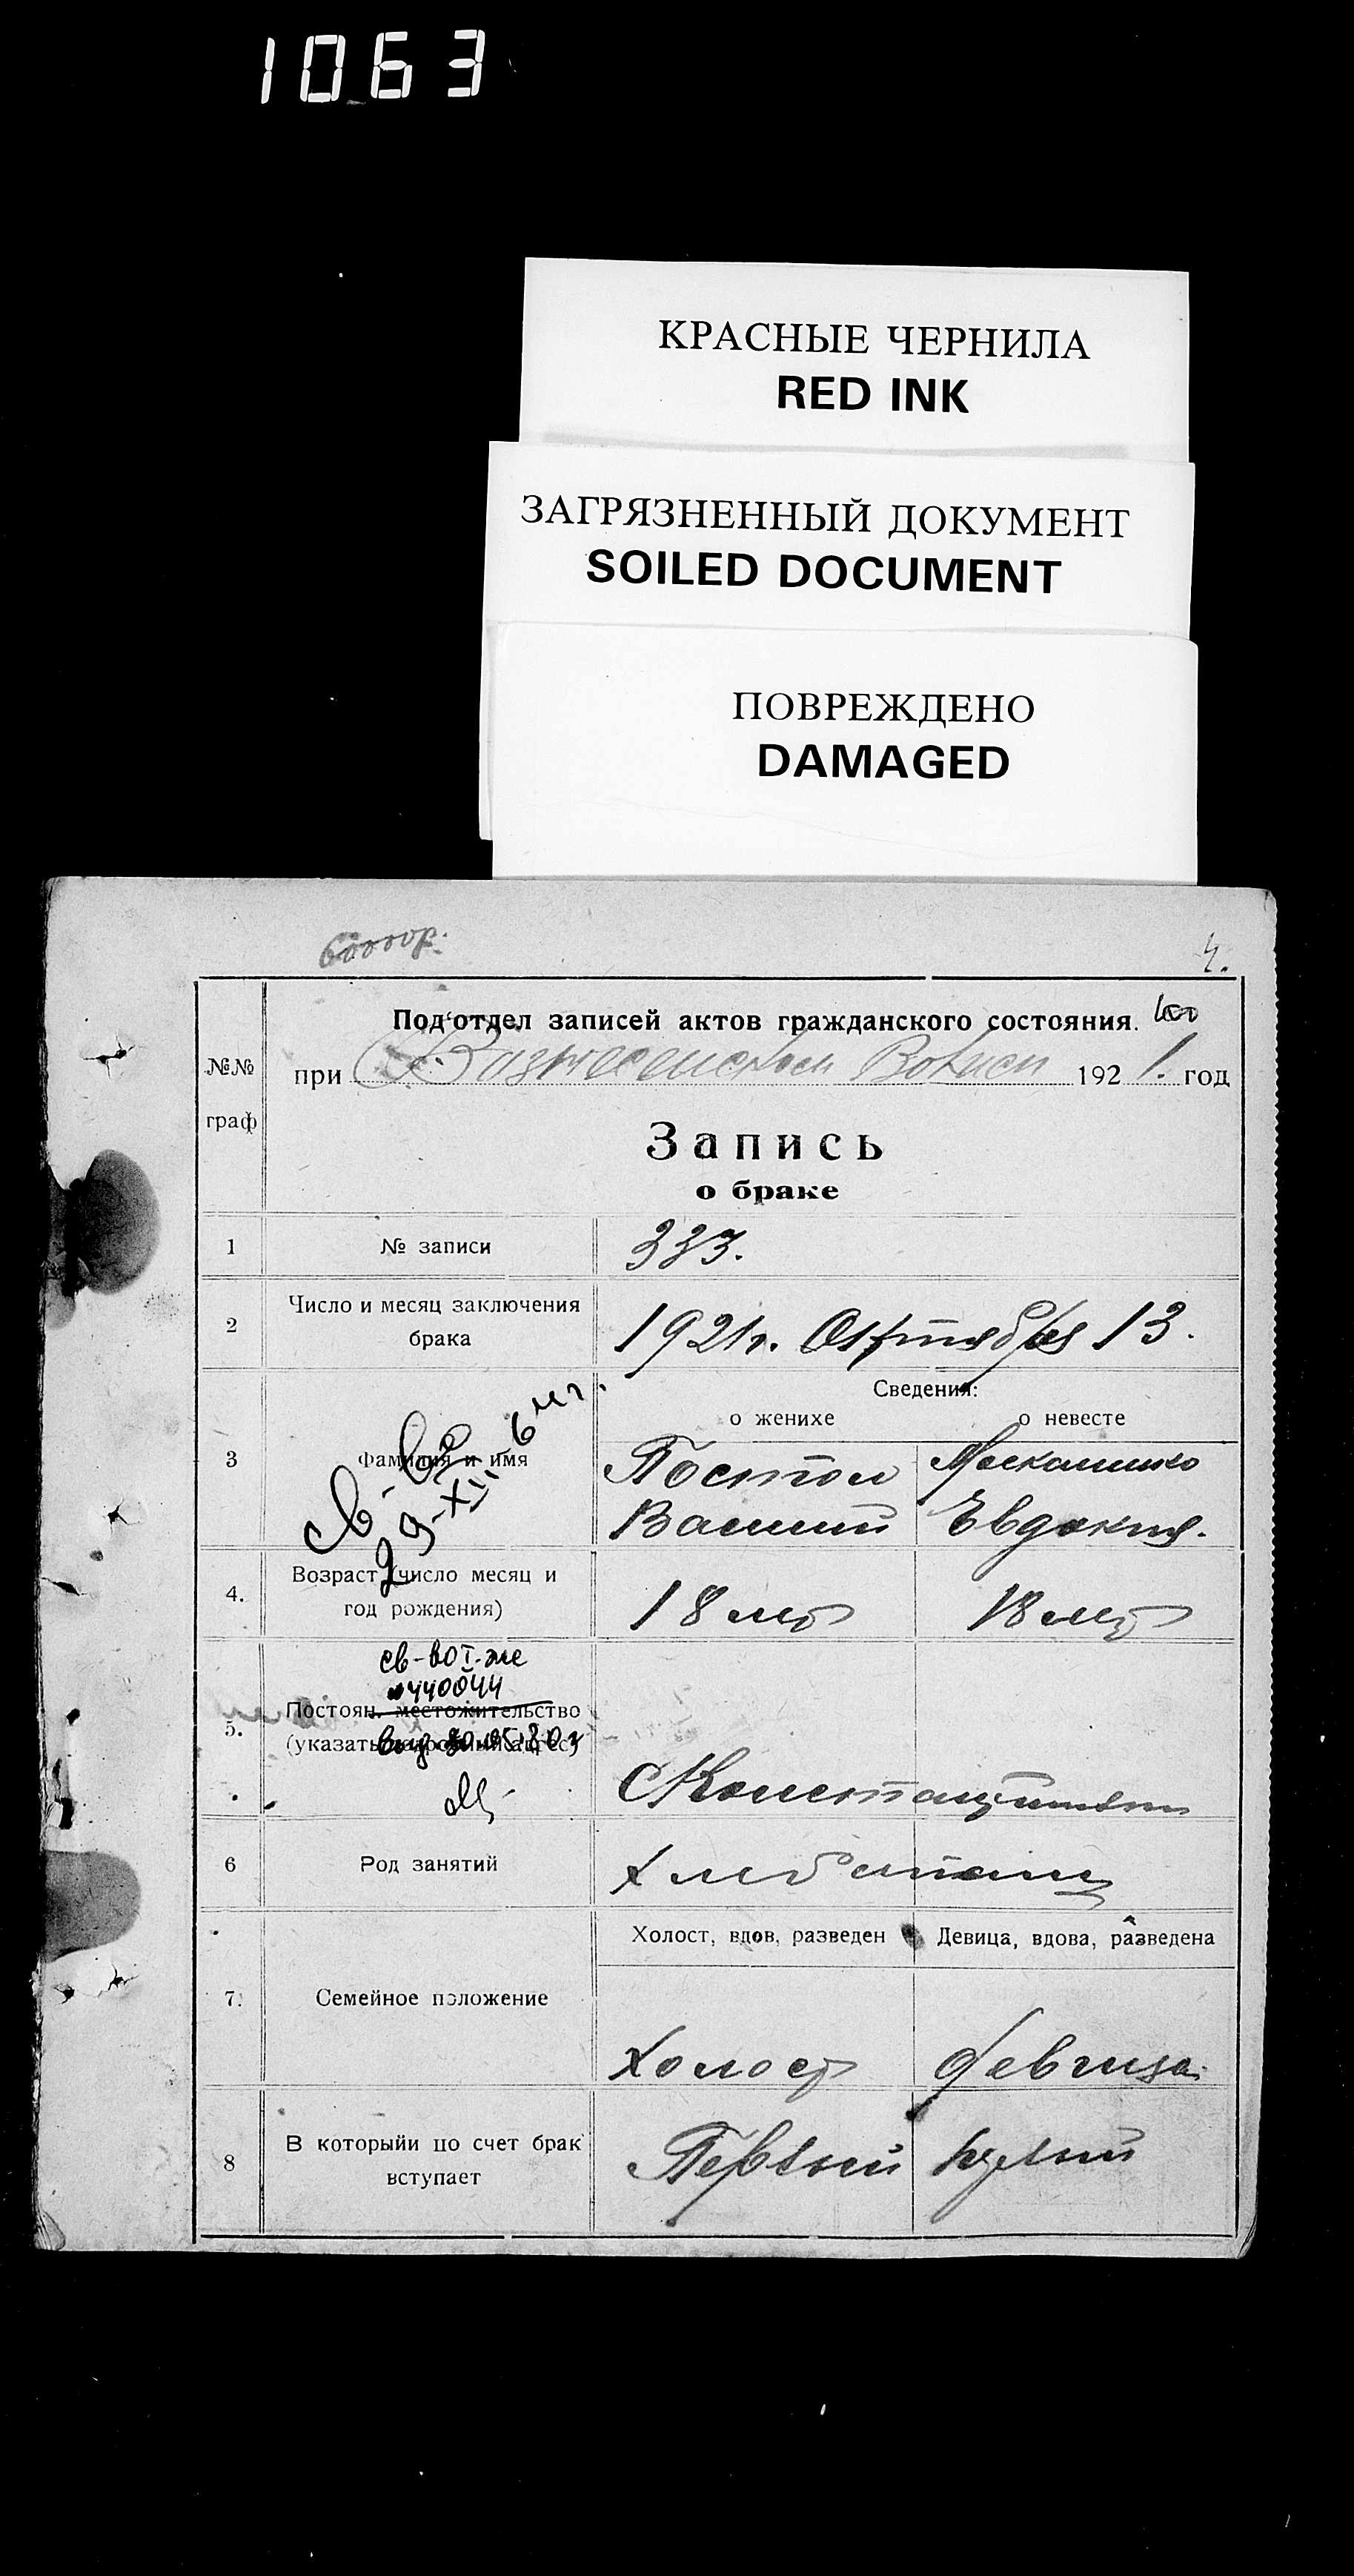 1063
КРАСНЫЕ ЧЕРНИЛА
RED INK
ЗАГРЯЗНЕННЫЙ ДОКУМЕНТ
SOILED DOCUMENT
ПОВРЕЖДЕНО
DAMAGED
4.
Под'отдел записей актов гражданского состояния.
№№ граф
при Вознесенском 192 1. год
Запись
о браке
1 № записи 333.
2 Число и месяц заключения брака 1921 г. Октября 13.
Сведения:
о женихе о невесте
3 Фамилия и имя Постол
Василий Евдокия.
св-во
29-XII 6
4. Возраст (число месяц и год рождения) 18 лет 18 лет
св-во I-же
№440044
5. Постоян. местожительство
(указать подробный адрес)
6 Род занятий
Холост, вдов, разведен Девица, вдова, разведена
7. Семейное положение
Холост девица.
8 В которыйи по счет брак вступает Первый первый